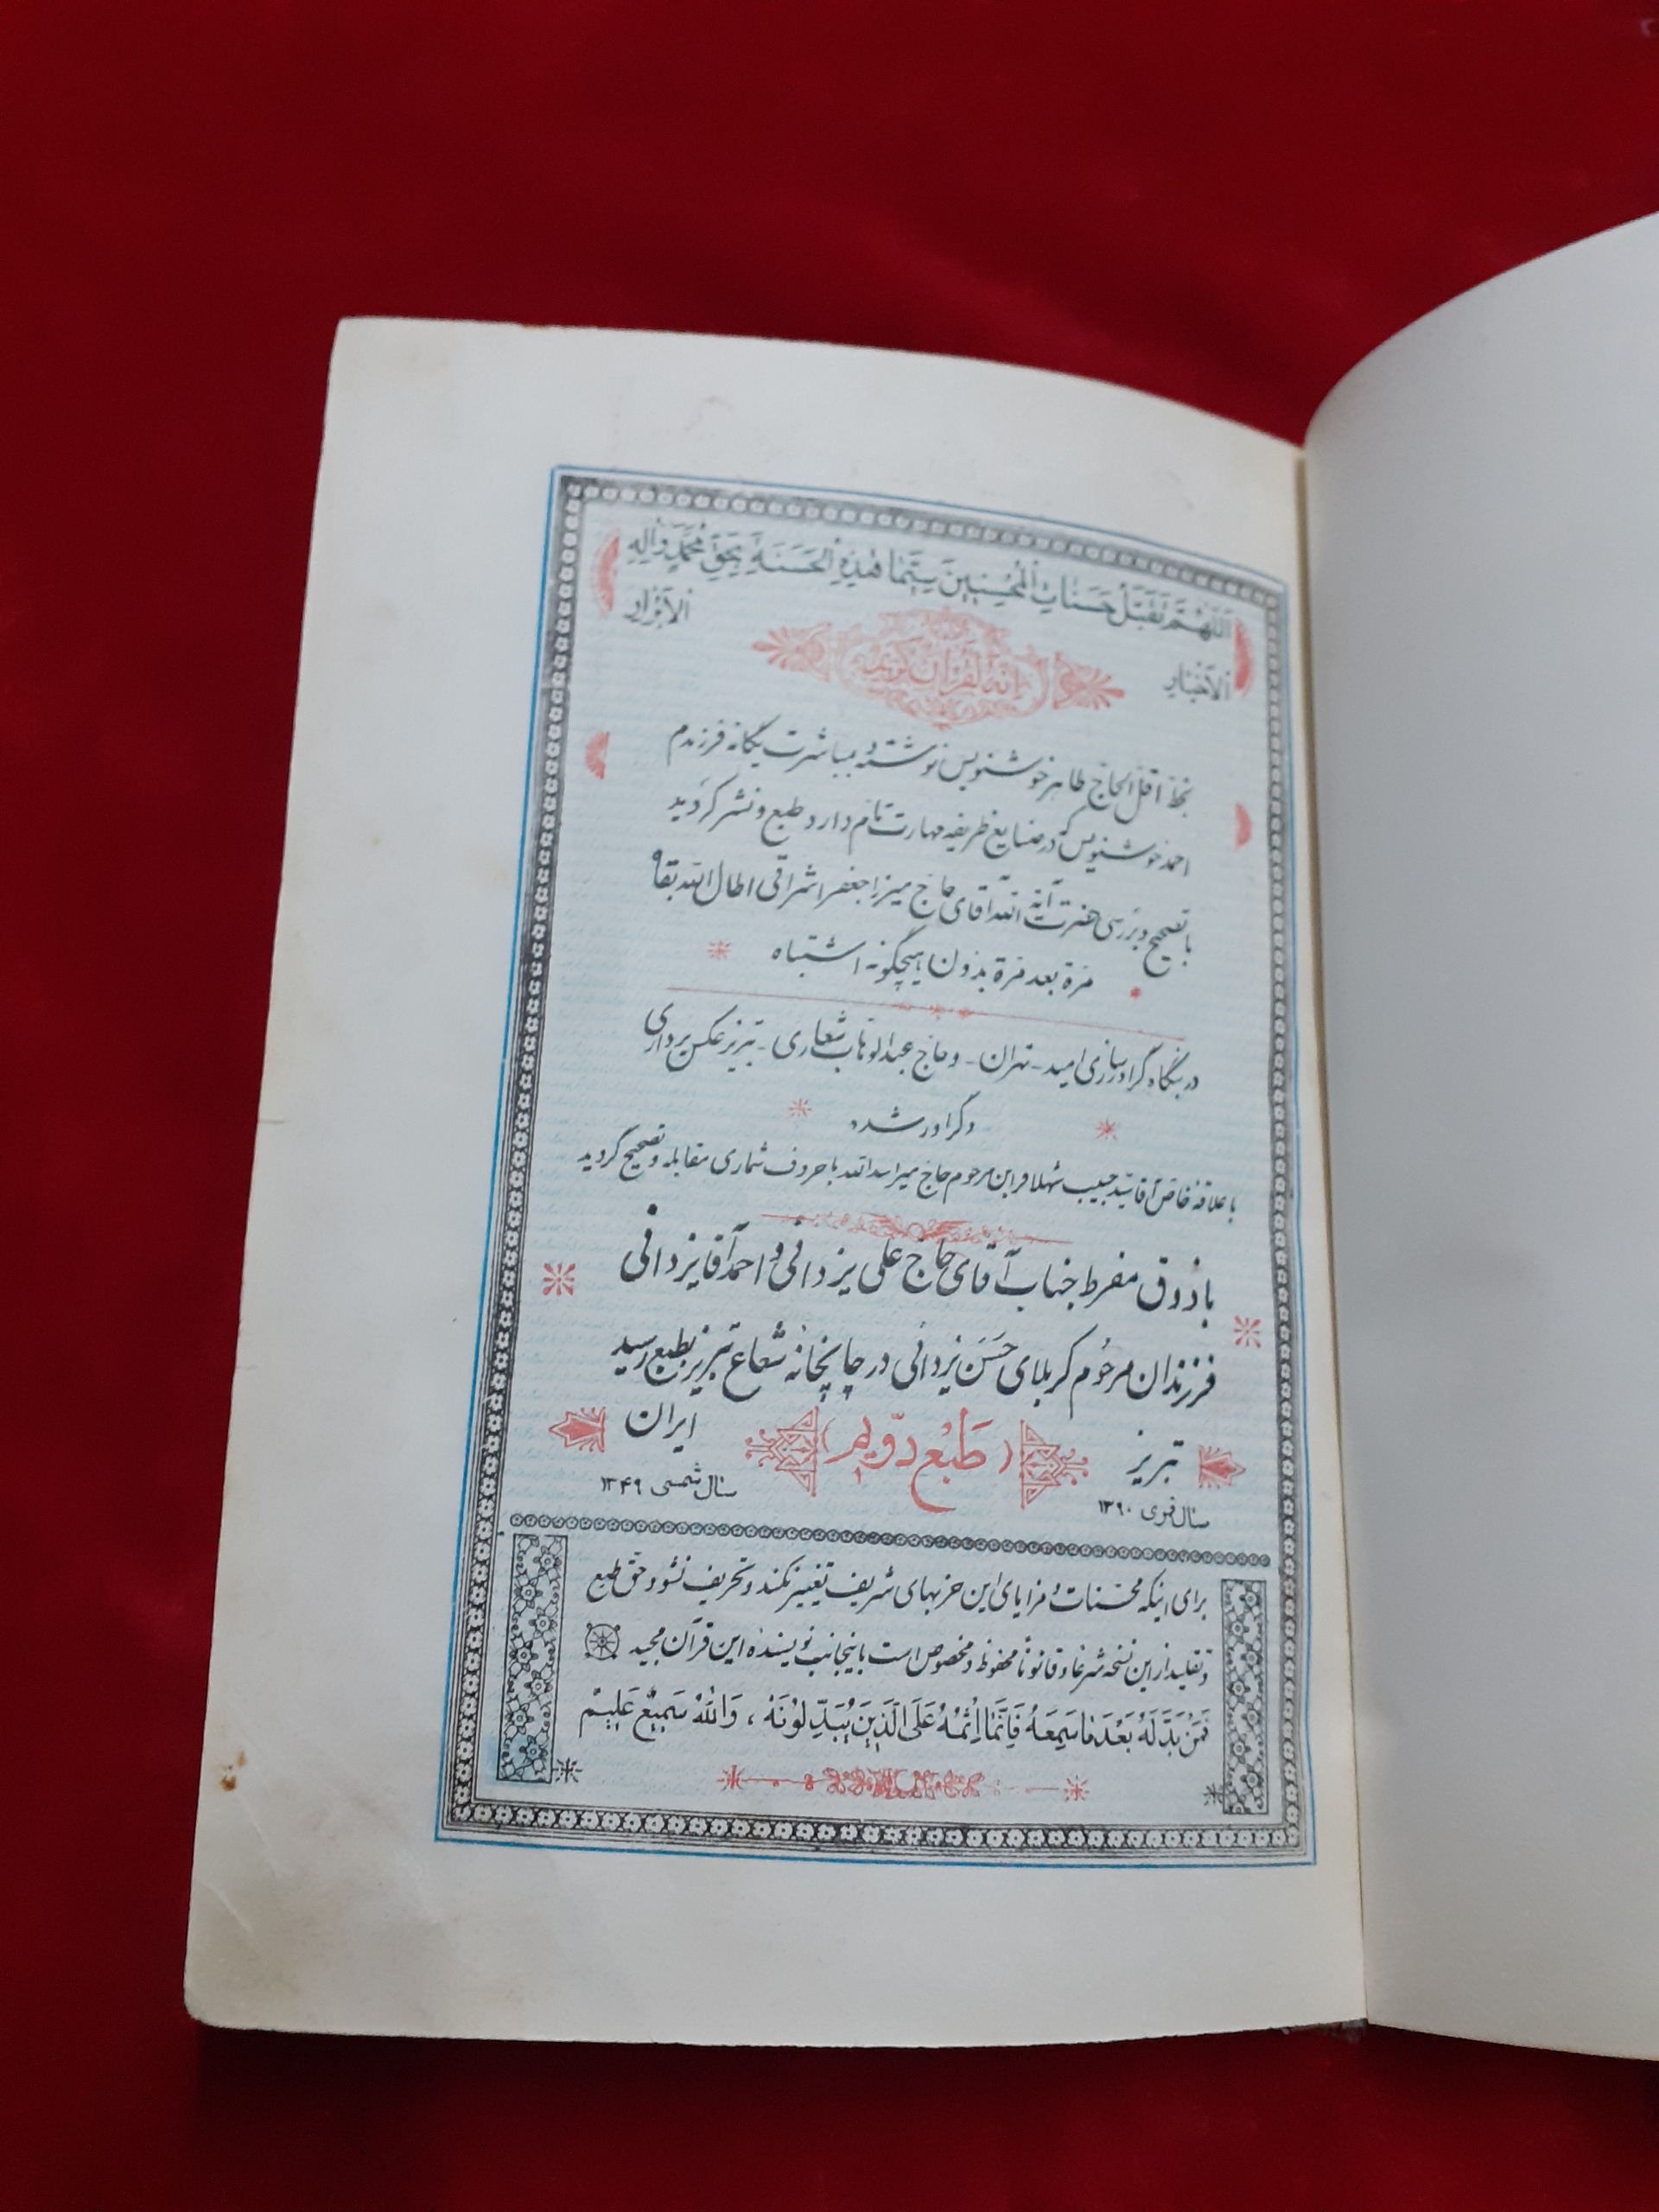 اَللّهُمَّ تَقَبَّلْ حَسَناتِ الْمُحْسِنِينَ سِيَّمَا هٰذِهِ الْحَسَنَةِ بِحَقِّ مُحَمَّدٍ وَالِهِ
الْاَخْيارِ الْاَبْرارِ
اِنَّهُ لَقُرْآنٌ كَرِيمٌ
بخط اقل الحاج طاهر خوشنویس نوشته و بمباشرت یگانه فرزندم
احمد خوشنویس که در صنایع ظریفه مهارت تام دارد طبع و نشر گردید
با تصحیح و بررسی حضرت آیة الله آقای حاج میرزا جعفر اشراقی اطال الله بقاه
مرة بعد مرة بدون هیچگونه اشتباه
در بنگاه گراورسازی امید - تهران - و حاج عبدالوهاب شعاری - تبریز عکس برداری
و گراور شده
با علاقهٔ خاص آقا سید حبیب شهلافر ابن مرحوم حاج میر اسدالله با حروف شماری مقابله و تصحیح گردید
با ذوق مفرط جناب آقای حاج علی یزدانی و احمد آقا یزدانی
فرزندان مرحوم کربلای حسن یزدانی در چاپخانه شعاع تبریز بطبع رسید
تبریز (طبع دویم) ایران
سال قمری ۱۳۹۰ سال شمسی ۱۳۴۹
برای اینکه محسنات و مزایای این حزبهای شریف تغییر نکند و تحریف نشود حق طبع
و تقلید از این نسخه شرعاً و قانوناً محفوظ و مخصوص است باینجانب نویسنده این قرآن مجید
فَمَنْ بَدَّلَهُ بَعْدَ مَا سَمِعَهُ فَاِنَّمَا اِثْمُهُ عَلَى الَّذِينَ يُبَدِّلُونَهُ ، وَاللهُ سَمِيعٌ عَلِيمٌ